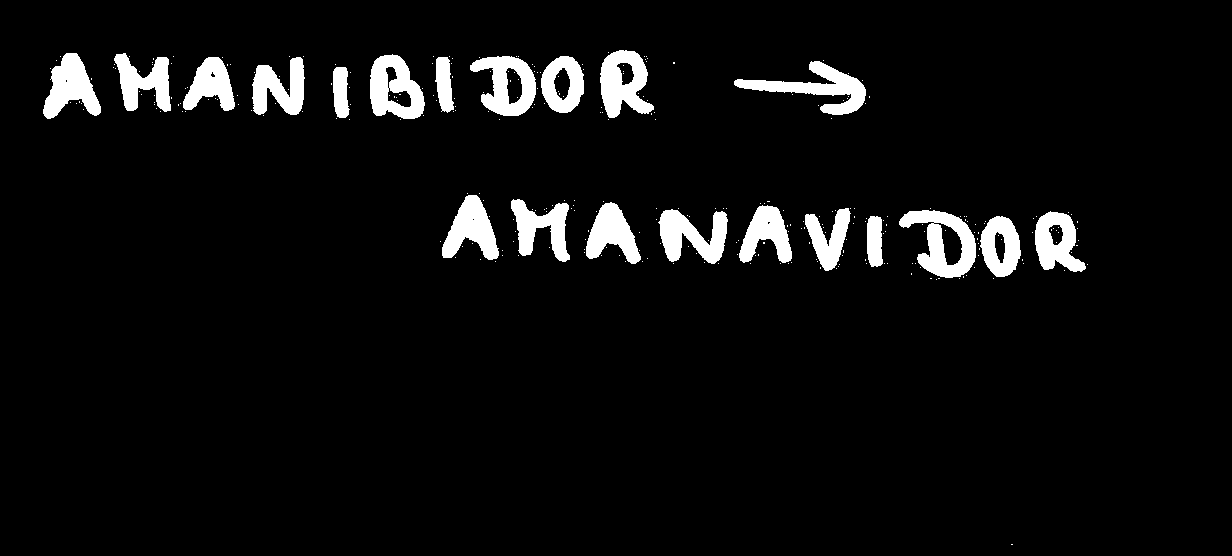 AMANIBIDOR →
AMANAVIDOR